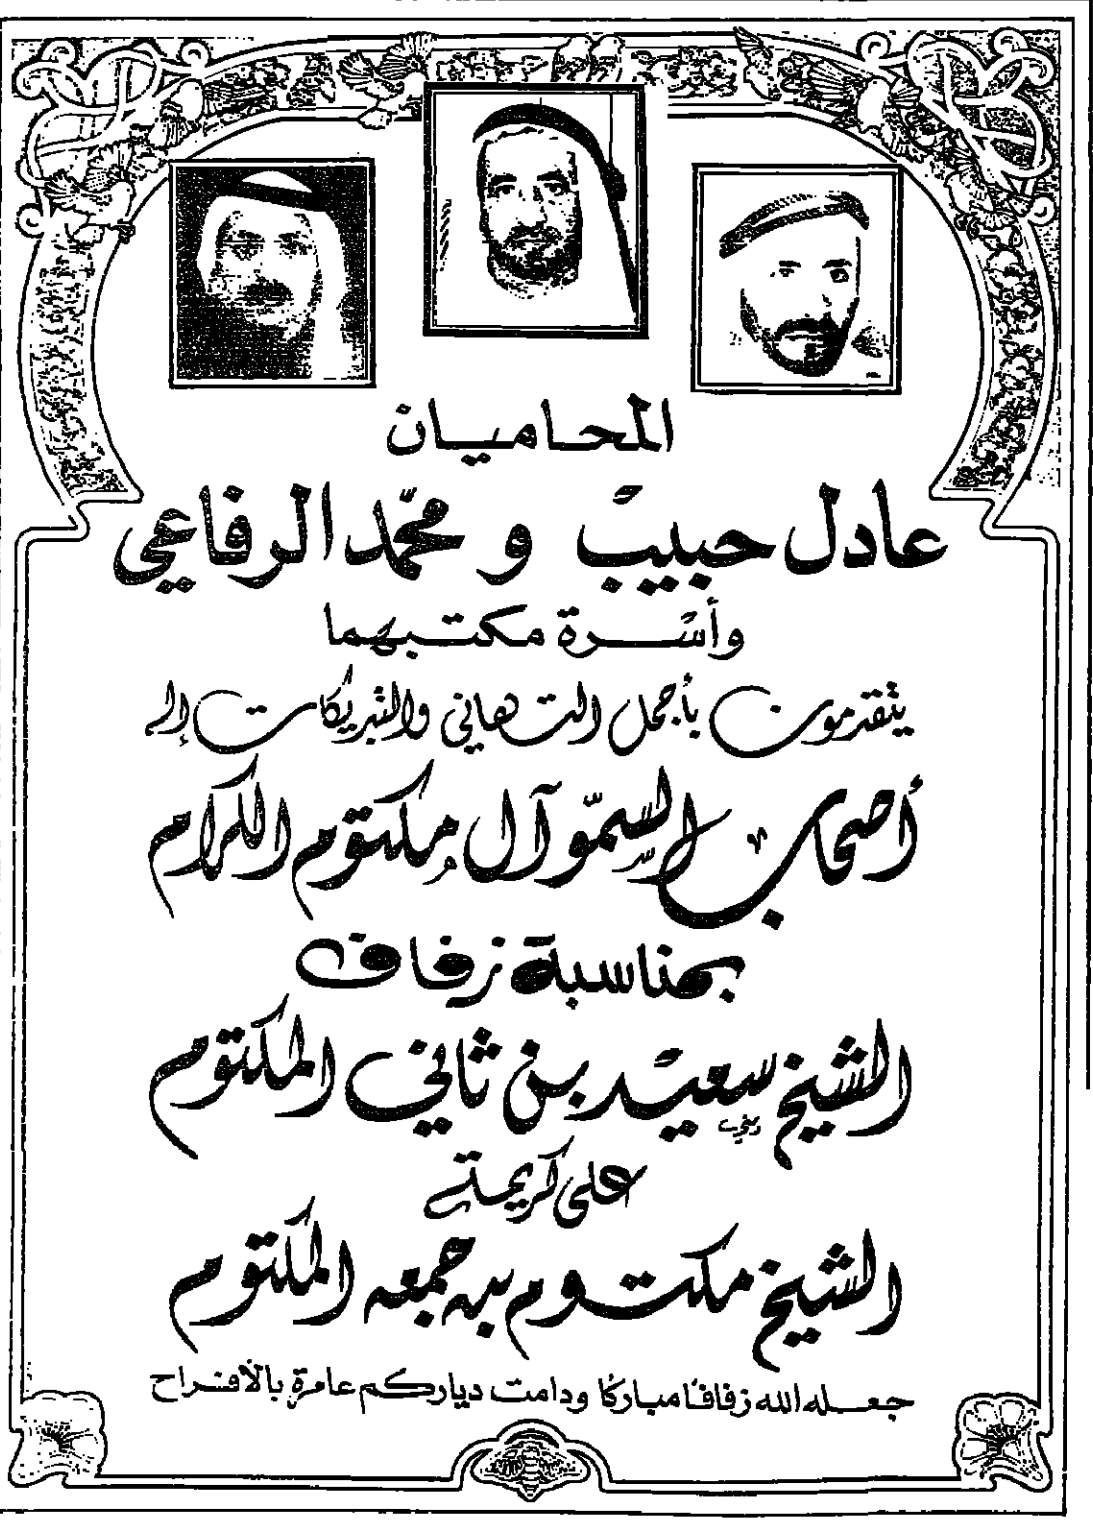 المحاميان
عادل حبيب و محمّد الرفاعي
وأسرة مكتبهما
يتقدمون بأجمل التهاني والتبريكات إلى
أصحاب السّمّو آل مكتوم الكرام
بمناسبة زفاف
الشيخ سعيد بن ثاني المكتوم
على كريمة
الشيخ مكتوم بن جمعه المكتوم
جعله الله زفافًا مباركًا ودامت دياركم عامرة بالأفراح